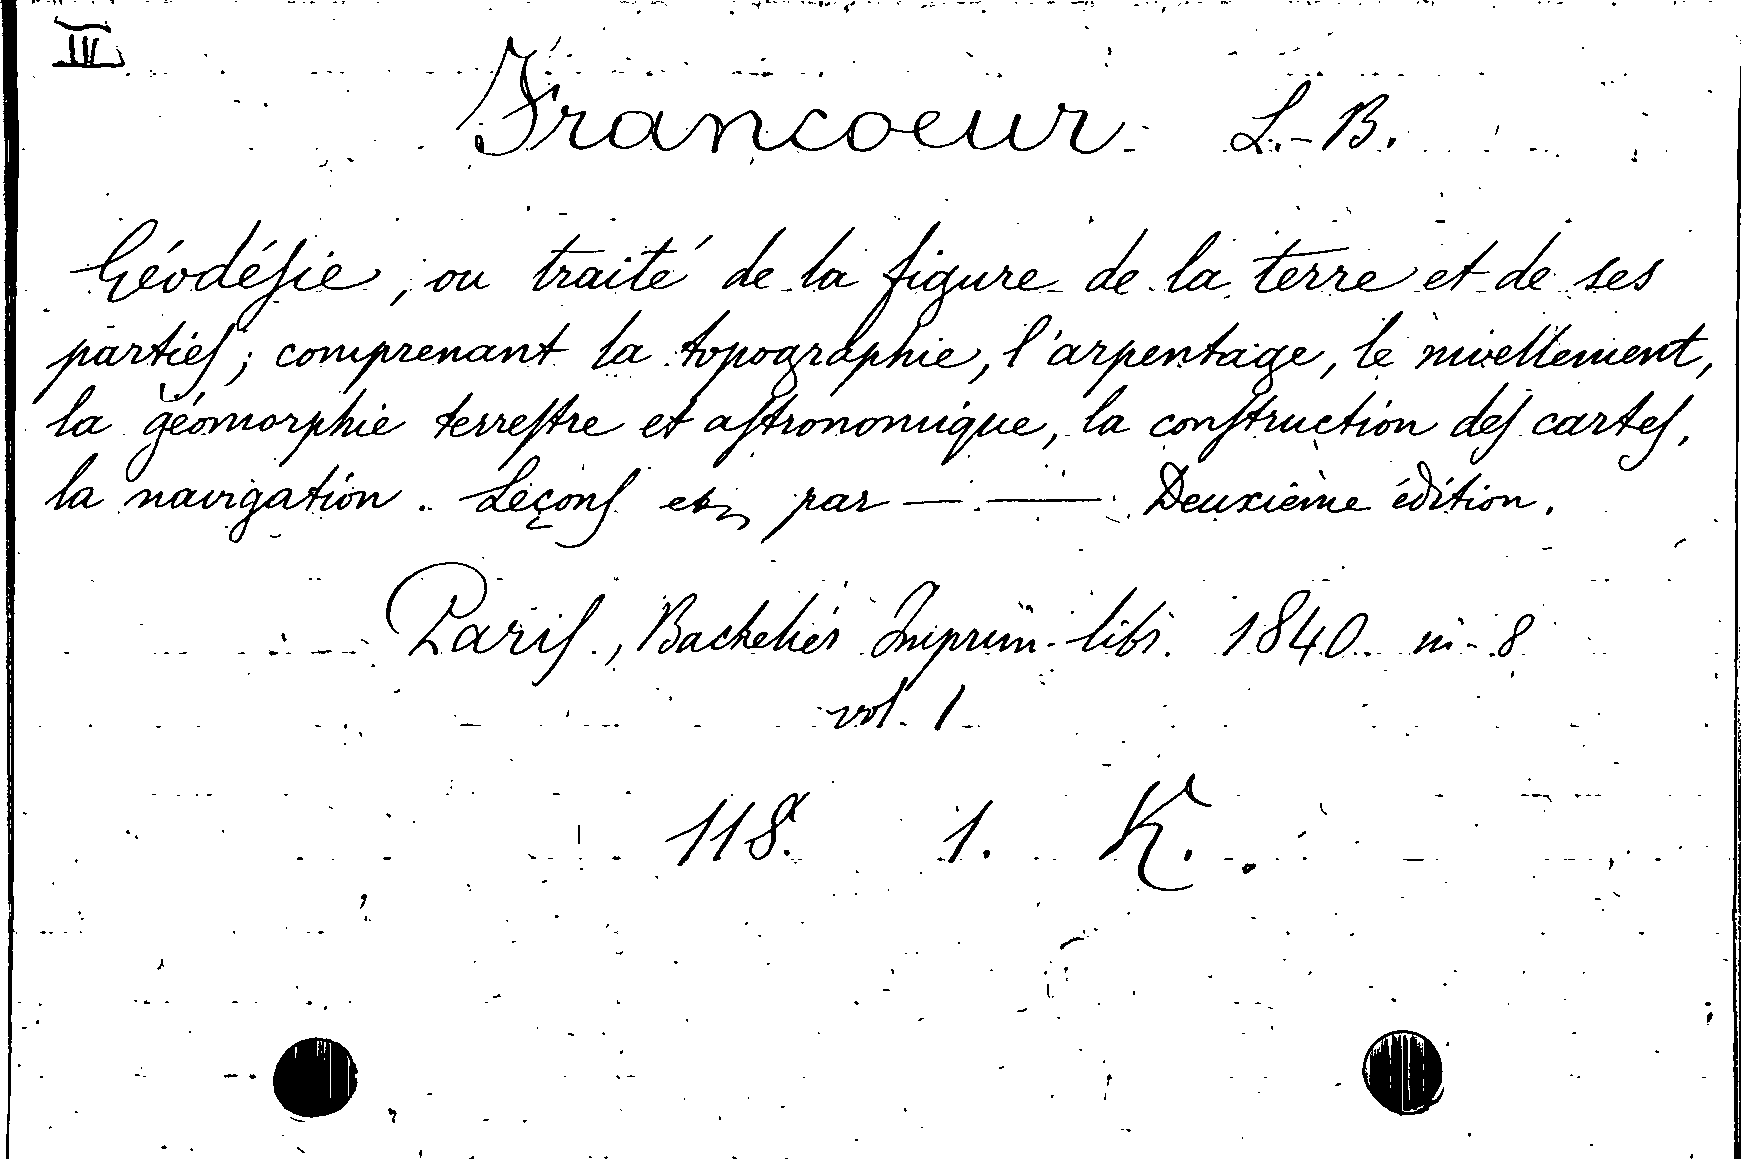 IV
Francoeur L.-B.
Géodésie, ou traité de la figure de la terre et de ses
parties; comprenant la topographie, l'arpentage, le nivellement,
la géomorphie terrestre et astronomique, la construction des cartes,
la navigation. Leçons etz par — — Deuxième édition.
Paris, Bachelier Imprim. libr. 1840 in-8
vol. 1
118. 1. K.